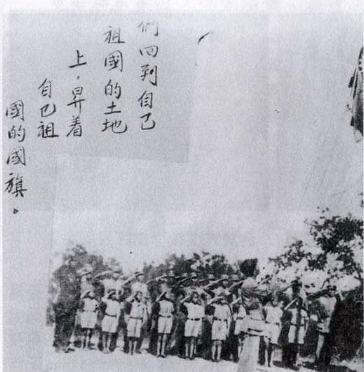 們回到自己
祖國的土地
上，昇着
自己祖
國的國旗。